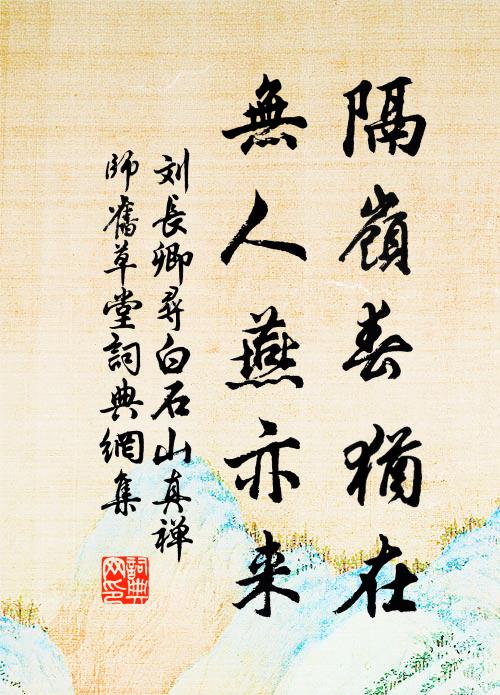 隔嶺春猶在
無人燕亦来
刘長卿尋白石山真禅
師舊草堂詞典網集
詞典
网印